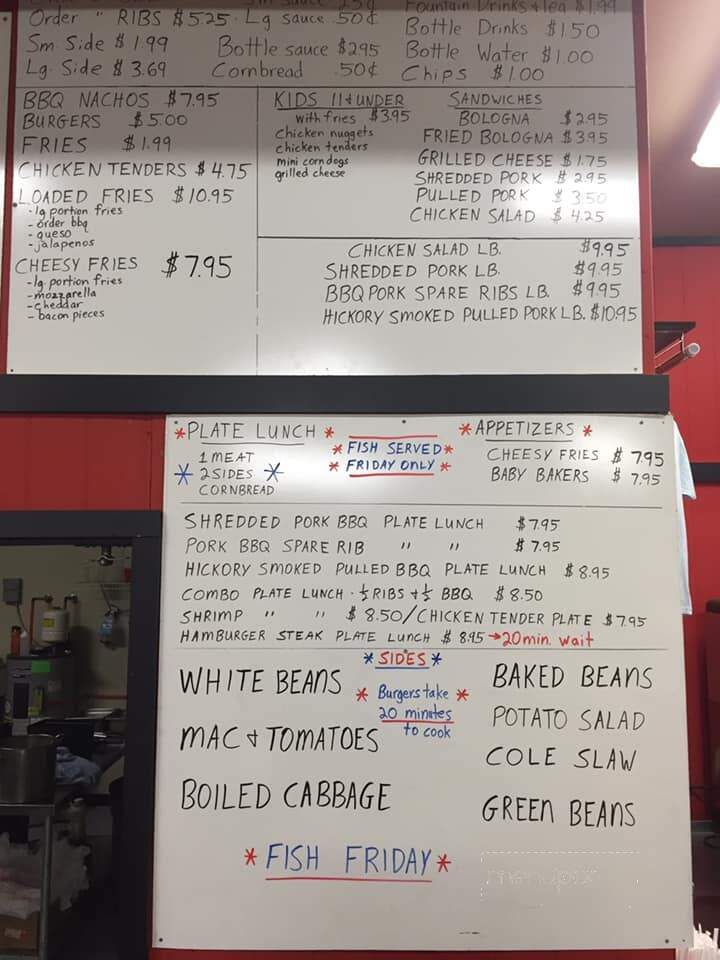 Sm sauce 25¢
Fountain Drinks & tea $1.99
Order " RIBS $5.25
Lg sauce .50¢
Bottle Drinks $1.50
Sm Side $1.99
Bottle sauce $2.95
Bottle Water $1.00
Lg. Side $3.69
Cornbread .50¢
Chips $1.00
BBQ NACHOS $7.95
BURGERS $5.00
FRIES $1.99
CHICKEN TENDERS $4.75
LOADED FRIES $10.95
-lg portion fries
-order bbq
-queso
-jalapenos
CHEESY FRIES $7.95
-lg portion fries
-mozzarella
-cheddar
-bacon pieces
KIDS 11 & UNDER
with fries $3.95
chicken nuggets
chicken tenders
mini corn dogs
grilled cheese
SANDWICHES
BOLOGNA $2.95
FRIED BOLOGNA $3.95
GRILLED CHEESE $1.75
SHREDDED PORK $2.95
PULLED PORK $3.50
CHICKEN SALAD $4.25
CHICKEN SALAD LB. $9.95
SHREDDED PORK LB. $9.95
BBQ PORK SPARE RIBS LB. $9.95
HICKORY SMOKED PULLED PORK LB. $10.95
*PLATE LUNCH*
1 MEAT
*2 SIDES*
CORNBREAD
*FISH SERVED*
*FRIDAY ONLY*
*APPETIZERS*
CHEESY FRIES $7.95
BABY BAKERS $7.95
SHREDDED PORK BBQ PLATE LUNCH $7.95
PORK BBQ SPARE RIB " " $7.95
HICKORY SMOKED PULLED BBQ PLATE LUNCH $8.95
COMBO PLATE LUNCH · ½ RIBS + ½ BBQ $8.50
SHRIMP " " $8.50/CHICKEN TENDER PLATE $7.95
HAMBURGER STEAK PLATE LUNCH $8.95→20 min. wait
*SIDES*
WHITE BEANS
MAC & TOMATOES
BOILED CABBAGE
*Burgers take*
20 minutes
to cook
BAKED BEANS
POTATO SALAD
COLE SLAW
GREEN BEANS
*FISH FRIDAY*
menupix